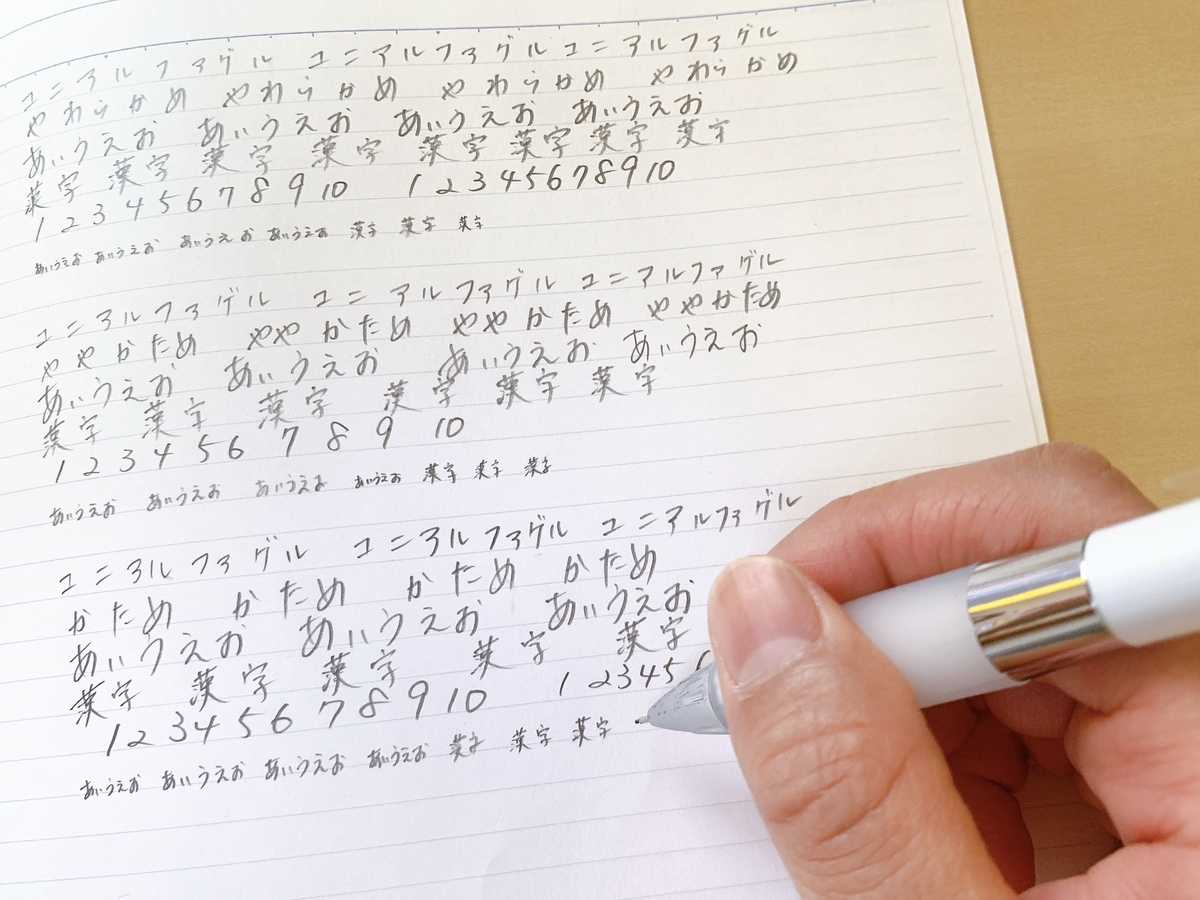 ユニアルファゲル ユニアルファゲル ユニアルファゲル
やわらかめ やわらかめ やわらかめ やわらかめ
あいうえお あいうえお あいうえお あいうえお
漢字 漢字 漢字 漢字 漢字 漢字 漢字 漢字
1 2 3 4 5 6 7 8 9 10 1 2 3 4 5 6 7 8 9 10
あいうえお あいうえお あいうえお あいうえお 漢字 漢字 漢字
ユニアルファゲル ユニアルファゲル ユニアルファゲル
ややかため ややかため ややかため ややかため
あいうえお あいうえお あいうえお あいうえお
漢字 漢字 漢字 漢字 漢字 漢字
1 2 3 4 5 6 7 8 9 10
あいうえお あいうえお あいうえお あいうえお 漢字 漢字 漢字
ユニアルファゲル ユニアルファゲル ユニアルファゲル
かため かため かため かため
あいうえお あいうえお あいうえお
漢字 漢字 漢字 漢字 漢字
1 2 3 4 5 6 7 8 9 10 1 2 3 4 5
あいうえお あいうえお あいうえお あいうえお 漢字 漢字 漢字